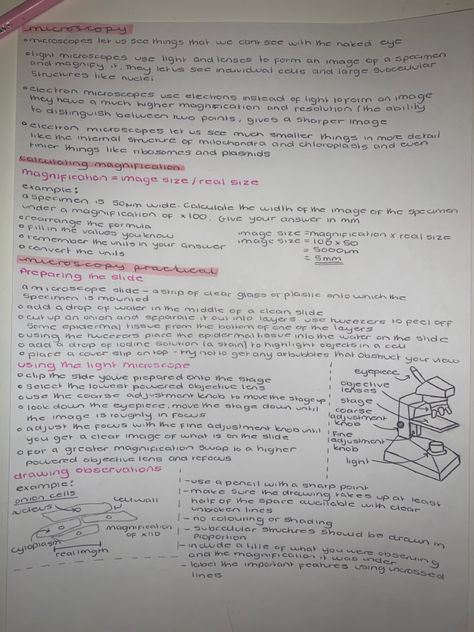 microscopy
• microscopes let us see things that we cant see with the naked eye
• light microscopes use light and lenses to form an image of a specimen
and magnify it. They let us see individual cells and large subcellular
structures like nuclei
• electron microscopes use electrons instead of light to form an image
they have a much higher magnification and resolution (the ability
to distinguish between two points, gives a sharper image
• electron microscopes let us see much smaller things in more detail
like the internal structure of mitochondria and chloroplasts and even
tinier things like ribosomes and plasmids
calculating magnification
magnification = image size / real size
example:
a specimen is 50μm wide. Calculate the width of the image of the specimen
under a magnification of ×100. Give your answer in mm
• rearrange the formula
• fill in the values you know
• remember the units in your answer
• convert the units
image size = magnification x real size
image size = 100 x 50
= 5000um
= 5mm
microscopy practical
Preparing the slide
a microscope slide - a strip of clear glass or plastic onto which the
specimen is mounted
• add a drop of water in the middle of a clean slide
• cut up an onion and separate it out into layers use tweezers to peel off
some epidermal tissue from the bottom of one of the layers
• using the tweezers place the epidermal tissue into the water on the slide
• add a drop of iodine solution (a stain) to highlight objects in a cell
• place a cover slip on top - try not to get any airbubbles that obstruct your view
using the light microscope
• clip the slide you've prepared onto the stage
• select the lowest powered objective lens
• use the coarse adjustment knob to move the stage up
• look down the eyepiece, move the stage down until
the image is roughly in focus
• adjust the focus with the fine adjustment knob until
you get a clear image of what is on the slide
• for a greater magnification swap to a higher
powered objective lens and refocus
eyepiece
objective
lenses
stage
coarse
adjustment
knob
fine
adjustment
knob
light
drawing observations
example:
onion cells
nucleus
cell wall
cytoplasm
magnification
of x110
real length
- use a pencil with a sharp point
- make sure the drawing takes up at least
half of the space available with clear
unbroken lines
- no colouring or shading
- subcellular structures should be drawn in
proportion
- include a title of what you were observing
and the magnification it was under
- label the important features using uncrossed
lines